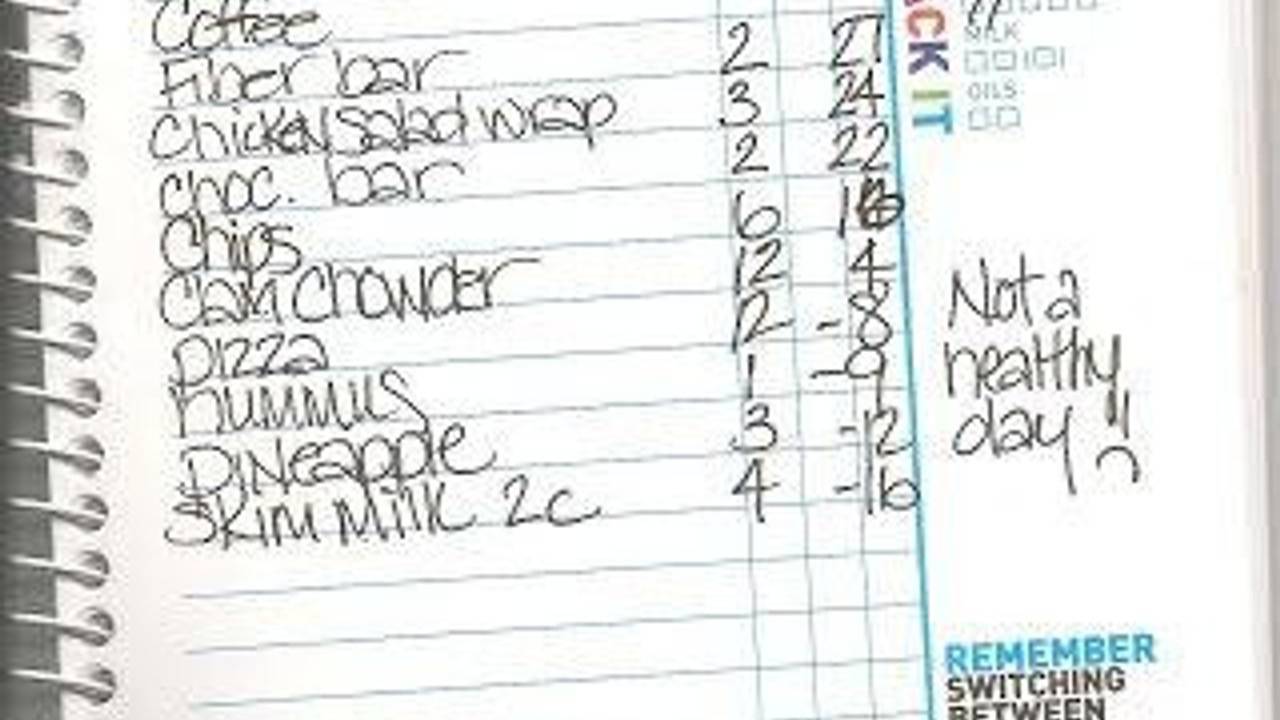 Coffee
Fiber bar 2 27
Chicken Salad wrap 3 24
choc. bar 2 22
Chips 6 16
Clam Chowder 12 4
pizza 12 -8
hummus 1 -9
pineapple 3 -12
Skim Milk 2c 4 -16
ACK IT
MILK
OILS
Not a
healthy
day !!
REMEMBER
SWITCHING
BETWEEN